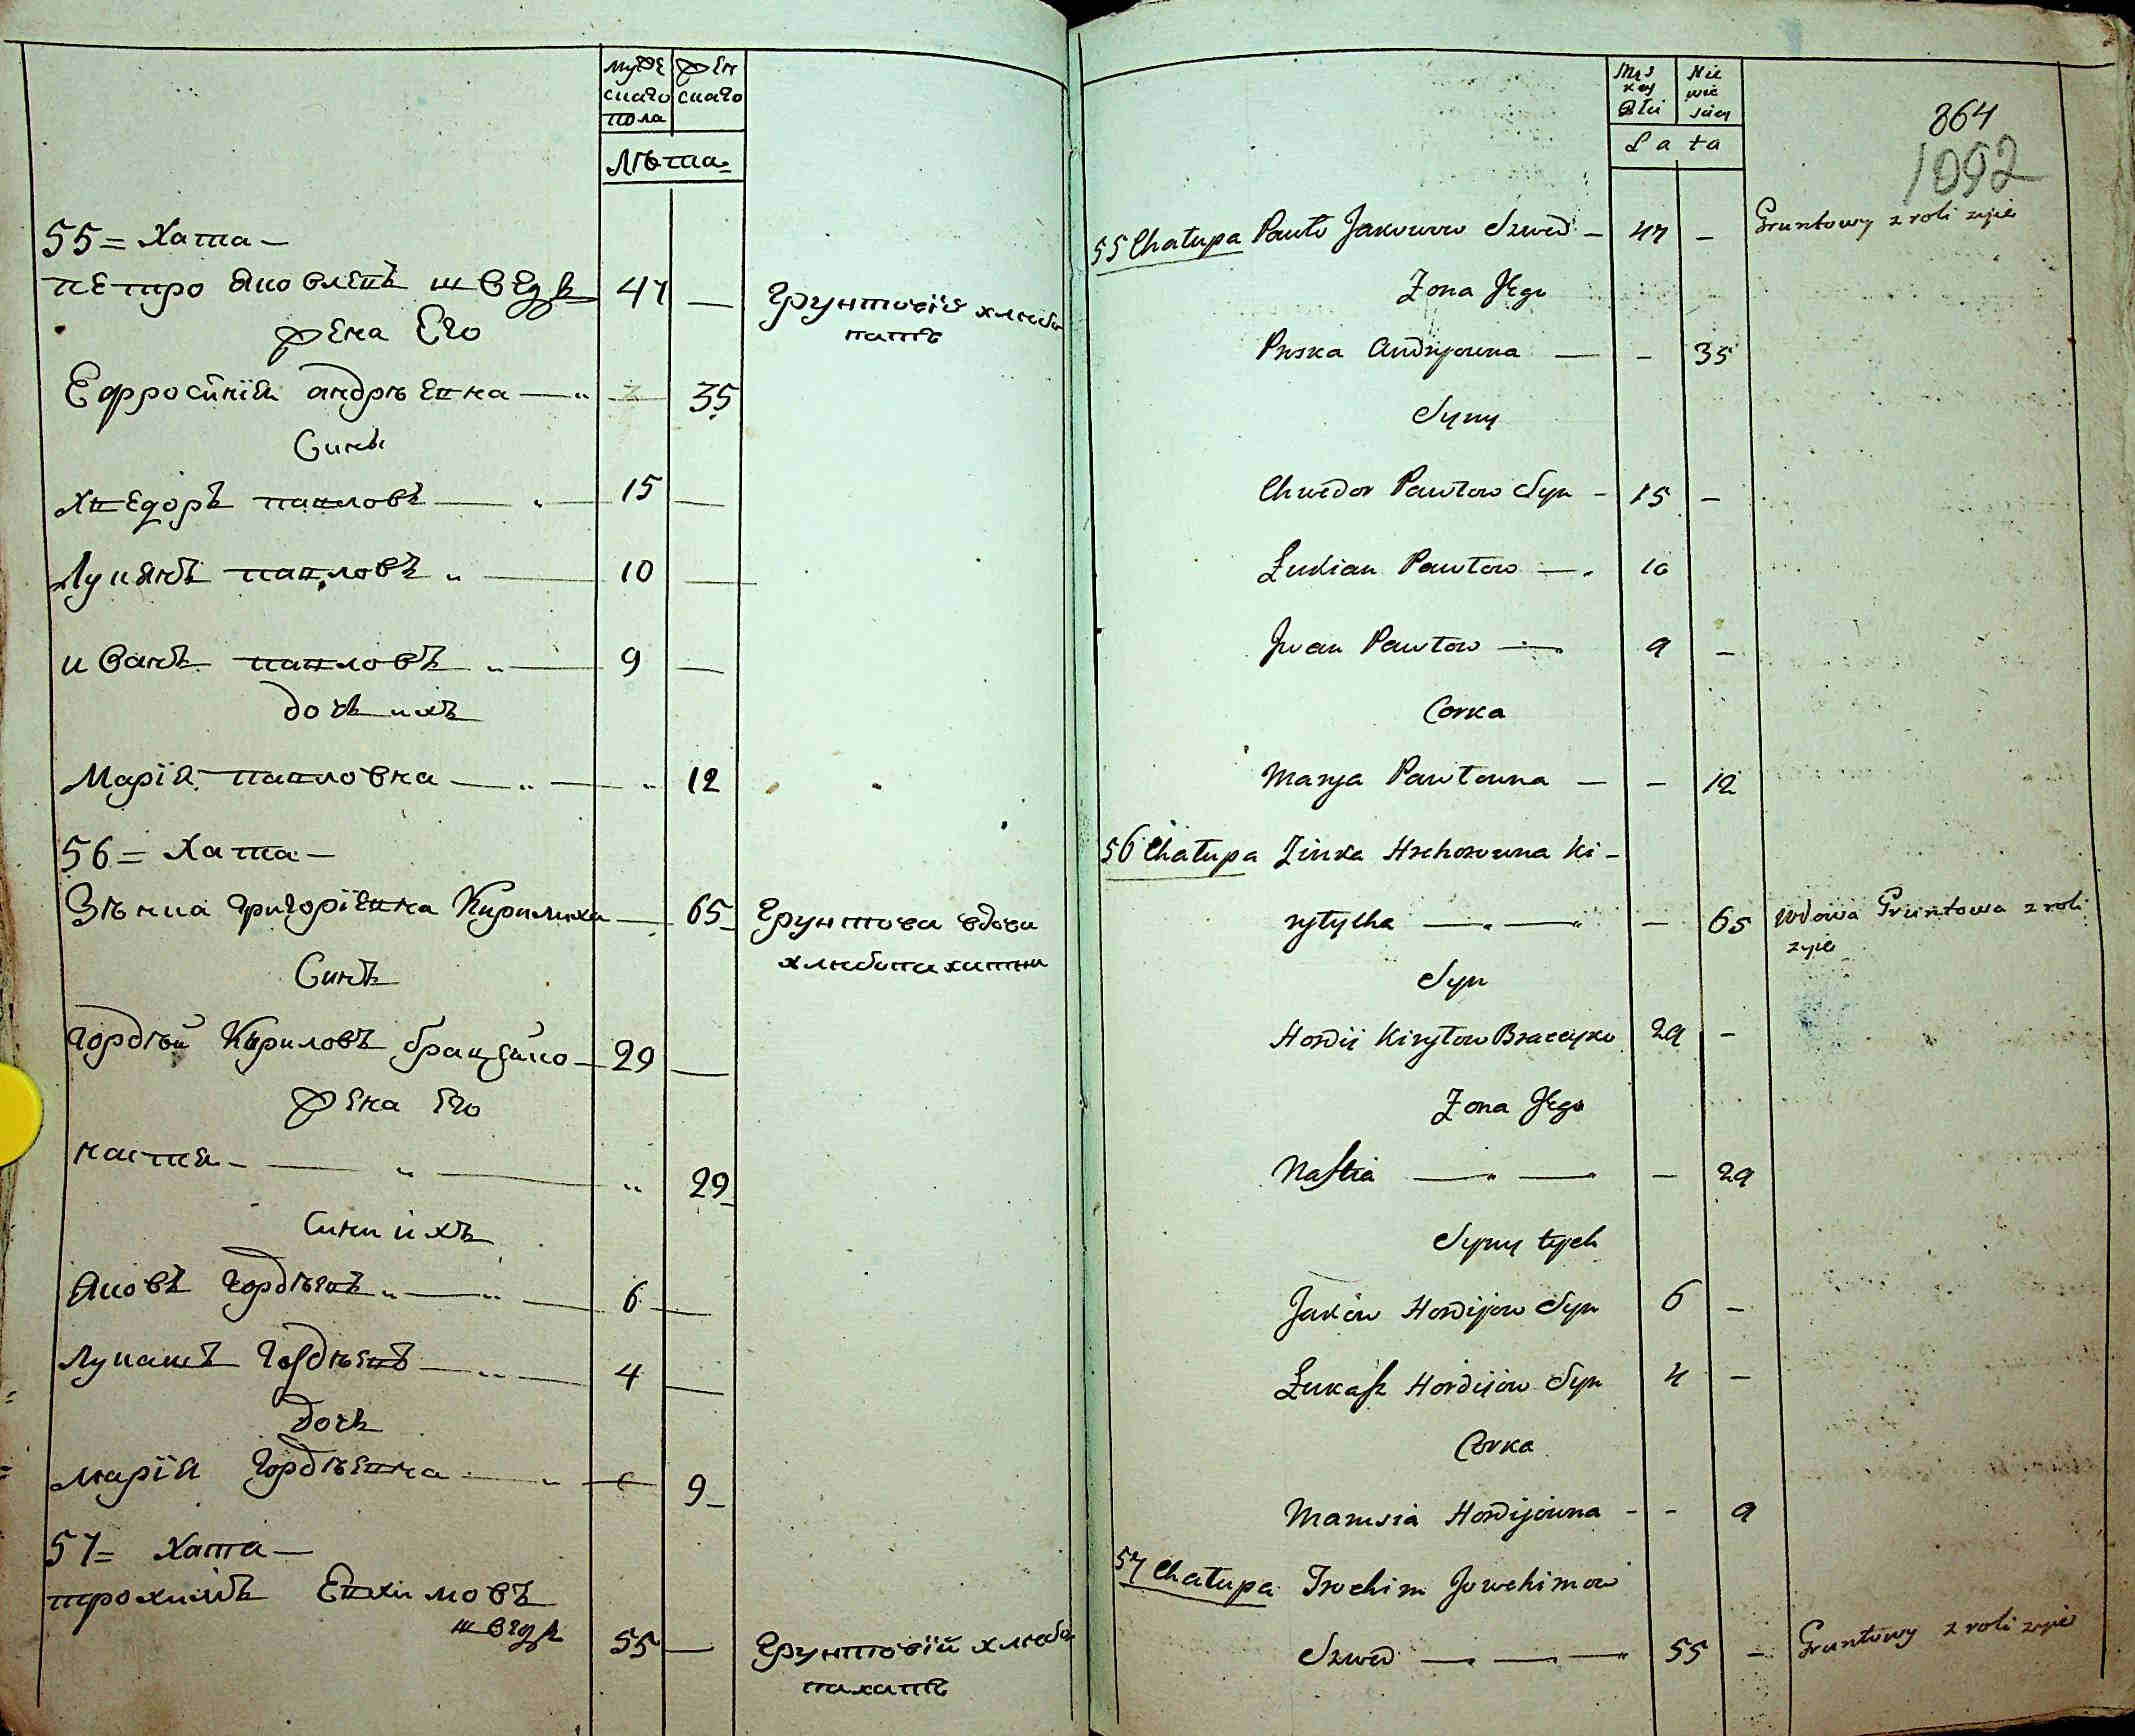 муже
скаго
пола
жен
скаго
Лѣта
55 = Хата —
петро Яковлевъ шведъ 47 —
Грунтовій хлѣбо
пашъ
жена Его
Ефросинія андрѣевна — 35
Сины
Хведоръ павловъ — 15 —
Лукянъ павловъ — 10 —
иванъ павловъ — 9 —
дочь ихъ
Марія павловна — 12
56 = Хата —
Зѣнка григоріевна Кирилиха — 65
Грунтова вдова
хлѣбопахатна
Синъ
гордѣй Кириловъ бращейко — 29 —
жена Его
настя — 29
Сини ихъ
Яковъ гордѣевъ — 6 —
лукашъ гордѣевъ — 4 —
дочь
марія гордѣевна — 9
57 = Хата —
трохимъ Евхимовъ
шведъ 55 —
Грунтовій хлѣбо
пахатъ
Męs
key
Płci
Nie
wie
sciey
Lata
864
1092
55 Chałupa Pawło Jakowow Szwed — 47 —
Gruntowy z roli żyie
Zona Jego
Pryska Andryowna — — 35
Syny
Chwedor Pawłow Syn — 15 —
Łukian Pawłow — 10
Jwan Pawłow — 9 —
Corka
Marya Pawłowna — — 12
56 Chałupa Zinka Hrehorowna Ki-
ryłycha — — 65
Wdowa Gruntowa z roli
żyie
Syn
Hordij Kiryłow Braceyko 29 —
Zona Jego
Nastia — — 29
Syny tych
Jaków Hordijow Syn 6 —
Łukasz Hordijow Syn 4 —
Corka
Marusia Hordijowna — — 9
57 Chałupa Trochim Jowchimow
Szwed — 55 —
Gruntowy z roli żyie